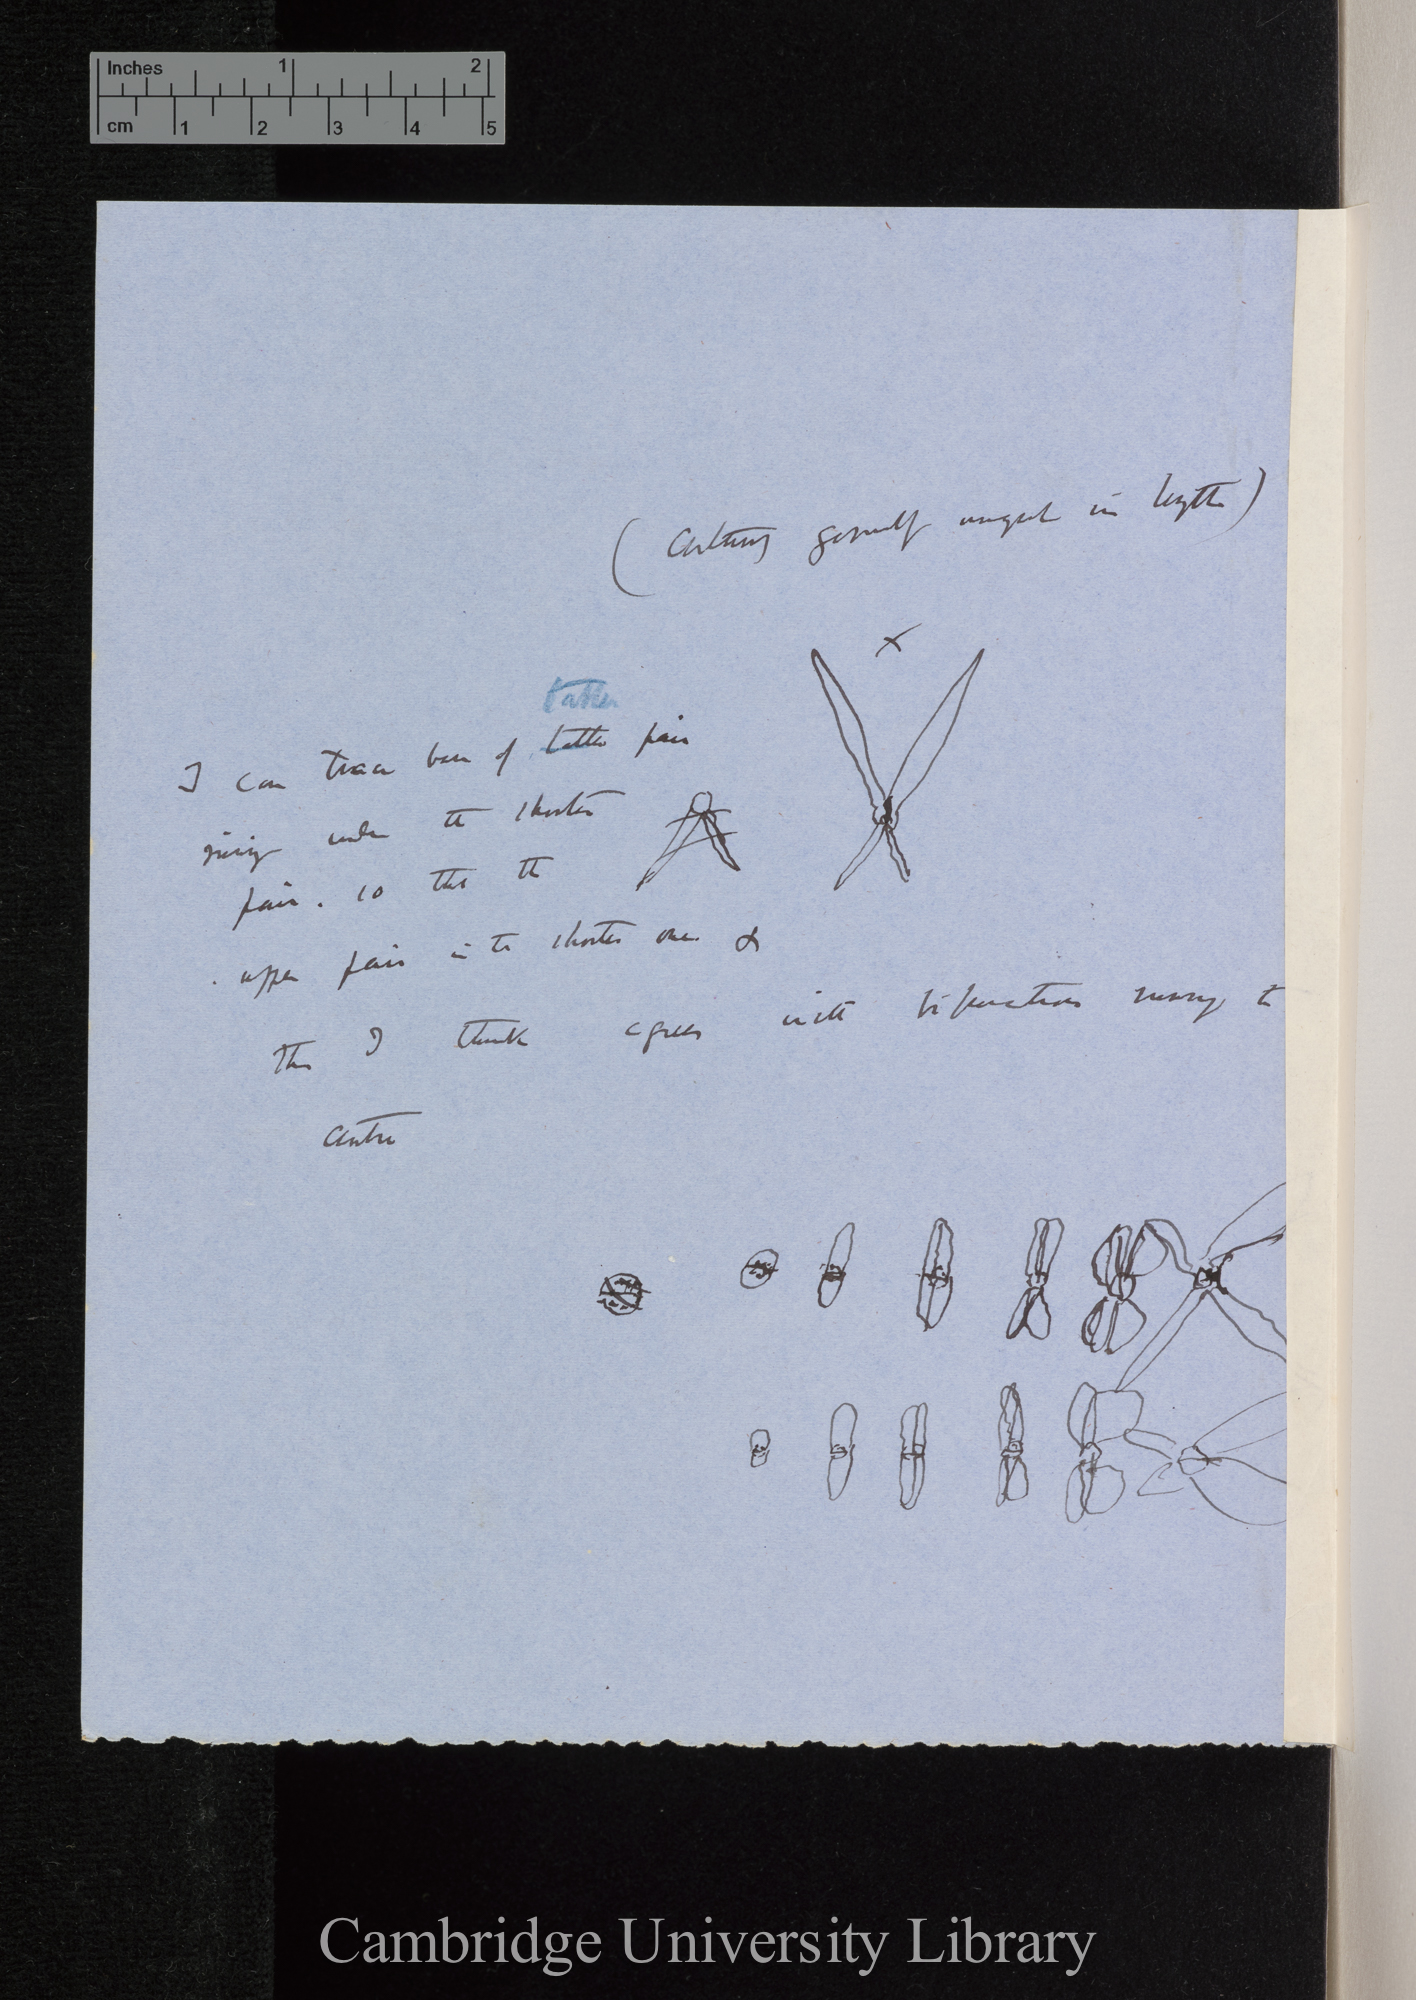 Inches 1 2
cm 1 2 3 4 5
( generally unequal in length)
taller
I can trace base of taller pair
rising under the shorter
pair. so that the
upper pair is the shorter one &
this I think agrees with bifurcation to
centre
Cambridge University Library